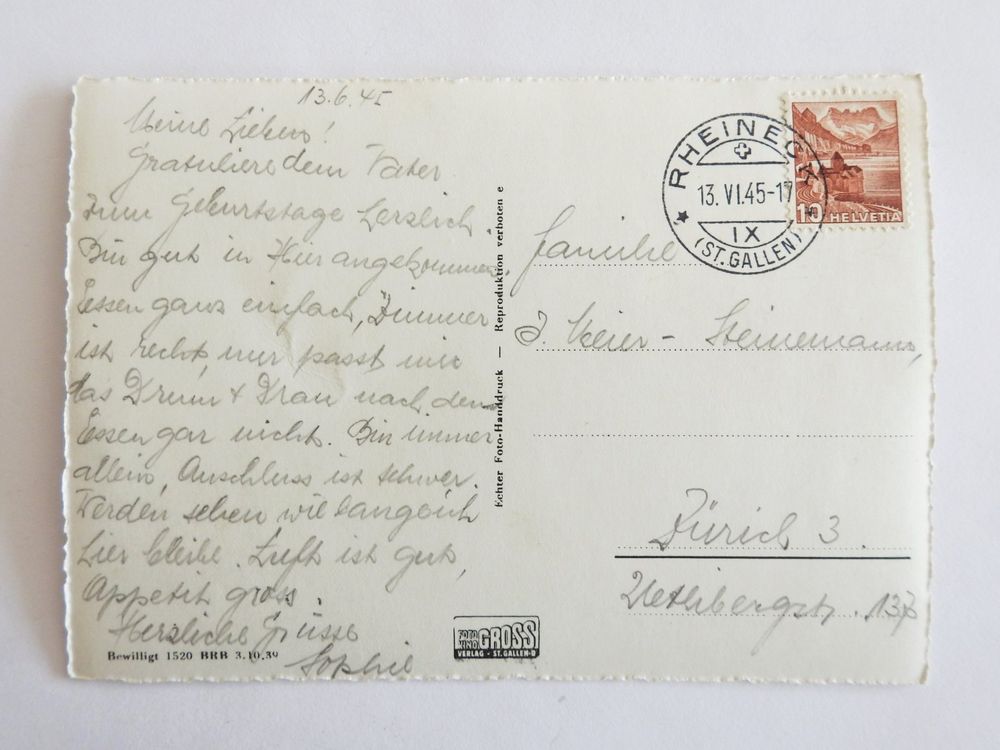 13.6.45
Meine Lieben!
Gratuliere dem Vater
zum Geburtstage herzlich
Bin gut in Hier angekommen.
Essen ganz einfach, Zimmer
ist recht, nur passt mir
das Drum + Dran nach dem
Essen gar nicht. Bin immer
allein, Anschluss ist schwer.
Werden sehen wie lange ich
hier bleibe. Luft ist gut,
Appetit gross.
Herzliche Grüsse
Sophie
Bewilligt 1520 BRB 3.10.39
Echter Foto-Handdruck — Reproduktion verboten e
FOTO KINO GROSS
VERLAG · ST. GALLEN-O
RHEINECK
13. VI.45-17
IX
(ST. GALLEN)
10 HELVETIA
Familie
J. Meier - Steinemann,
Zürich 3.
Uetlibergstr. 137